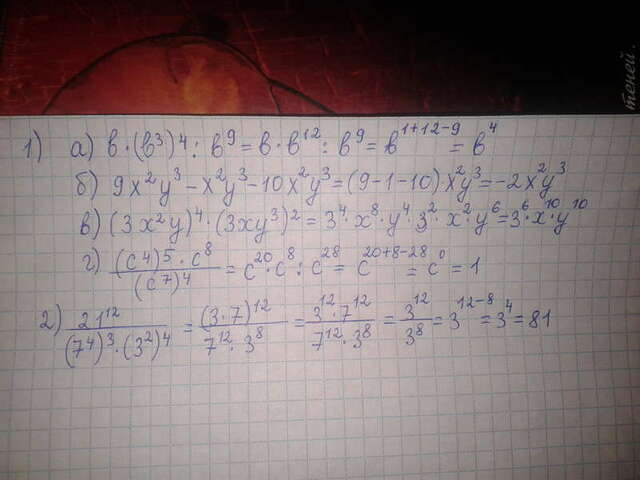 теней
1) а) в·(в³)⁴ : в⁹ = в·в¹² : в⁹ = в¹⁺¹²⁻⁹ = в⁴
б) 9x²y³ - x²y³ - 10x²y³ = (9-1-10)x²y³ = -2x²y³
в) (3x²y)⁴·(3xy³)² = 3⁴·x⁸·y⁴·3²·x²·y⁶ = 3⁶·x¹⁰·y¹⁰
г) (c⁴)⁵·c⁸/(c⁷)⁴ = c²⁰·c⁸ : c²⁸ = c²⁰⁺⁸⁻²⁸ = c⁰ = 1
2) 21¹²/(7⁴)³·(3²)⁴ = (3·7)¹²/7¹²·3⁸ = 3¹²·7¹²/7¹²·3⁸ = 3¹²/3⁸ = 3¹²⁻⁸ = 3⁴ = 81